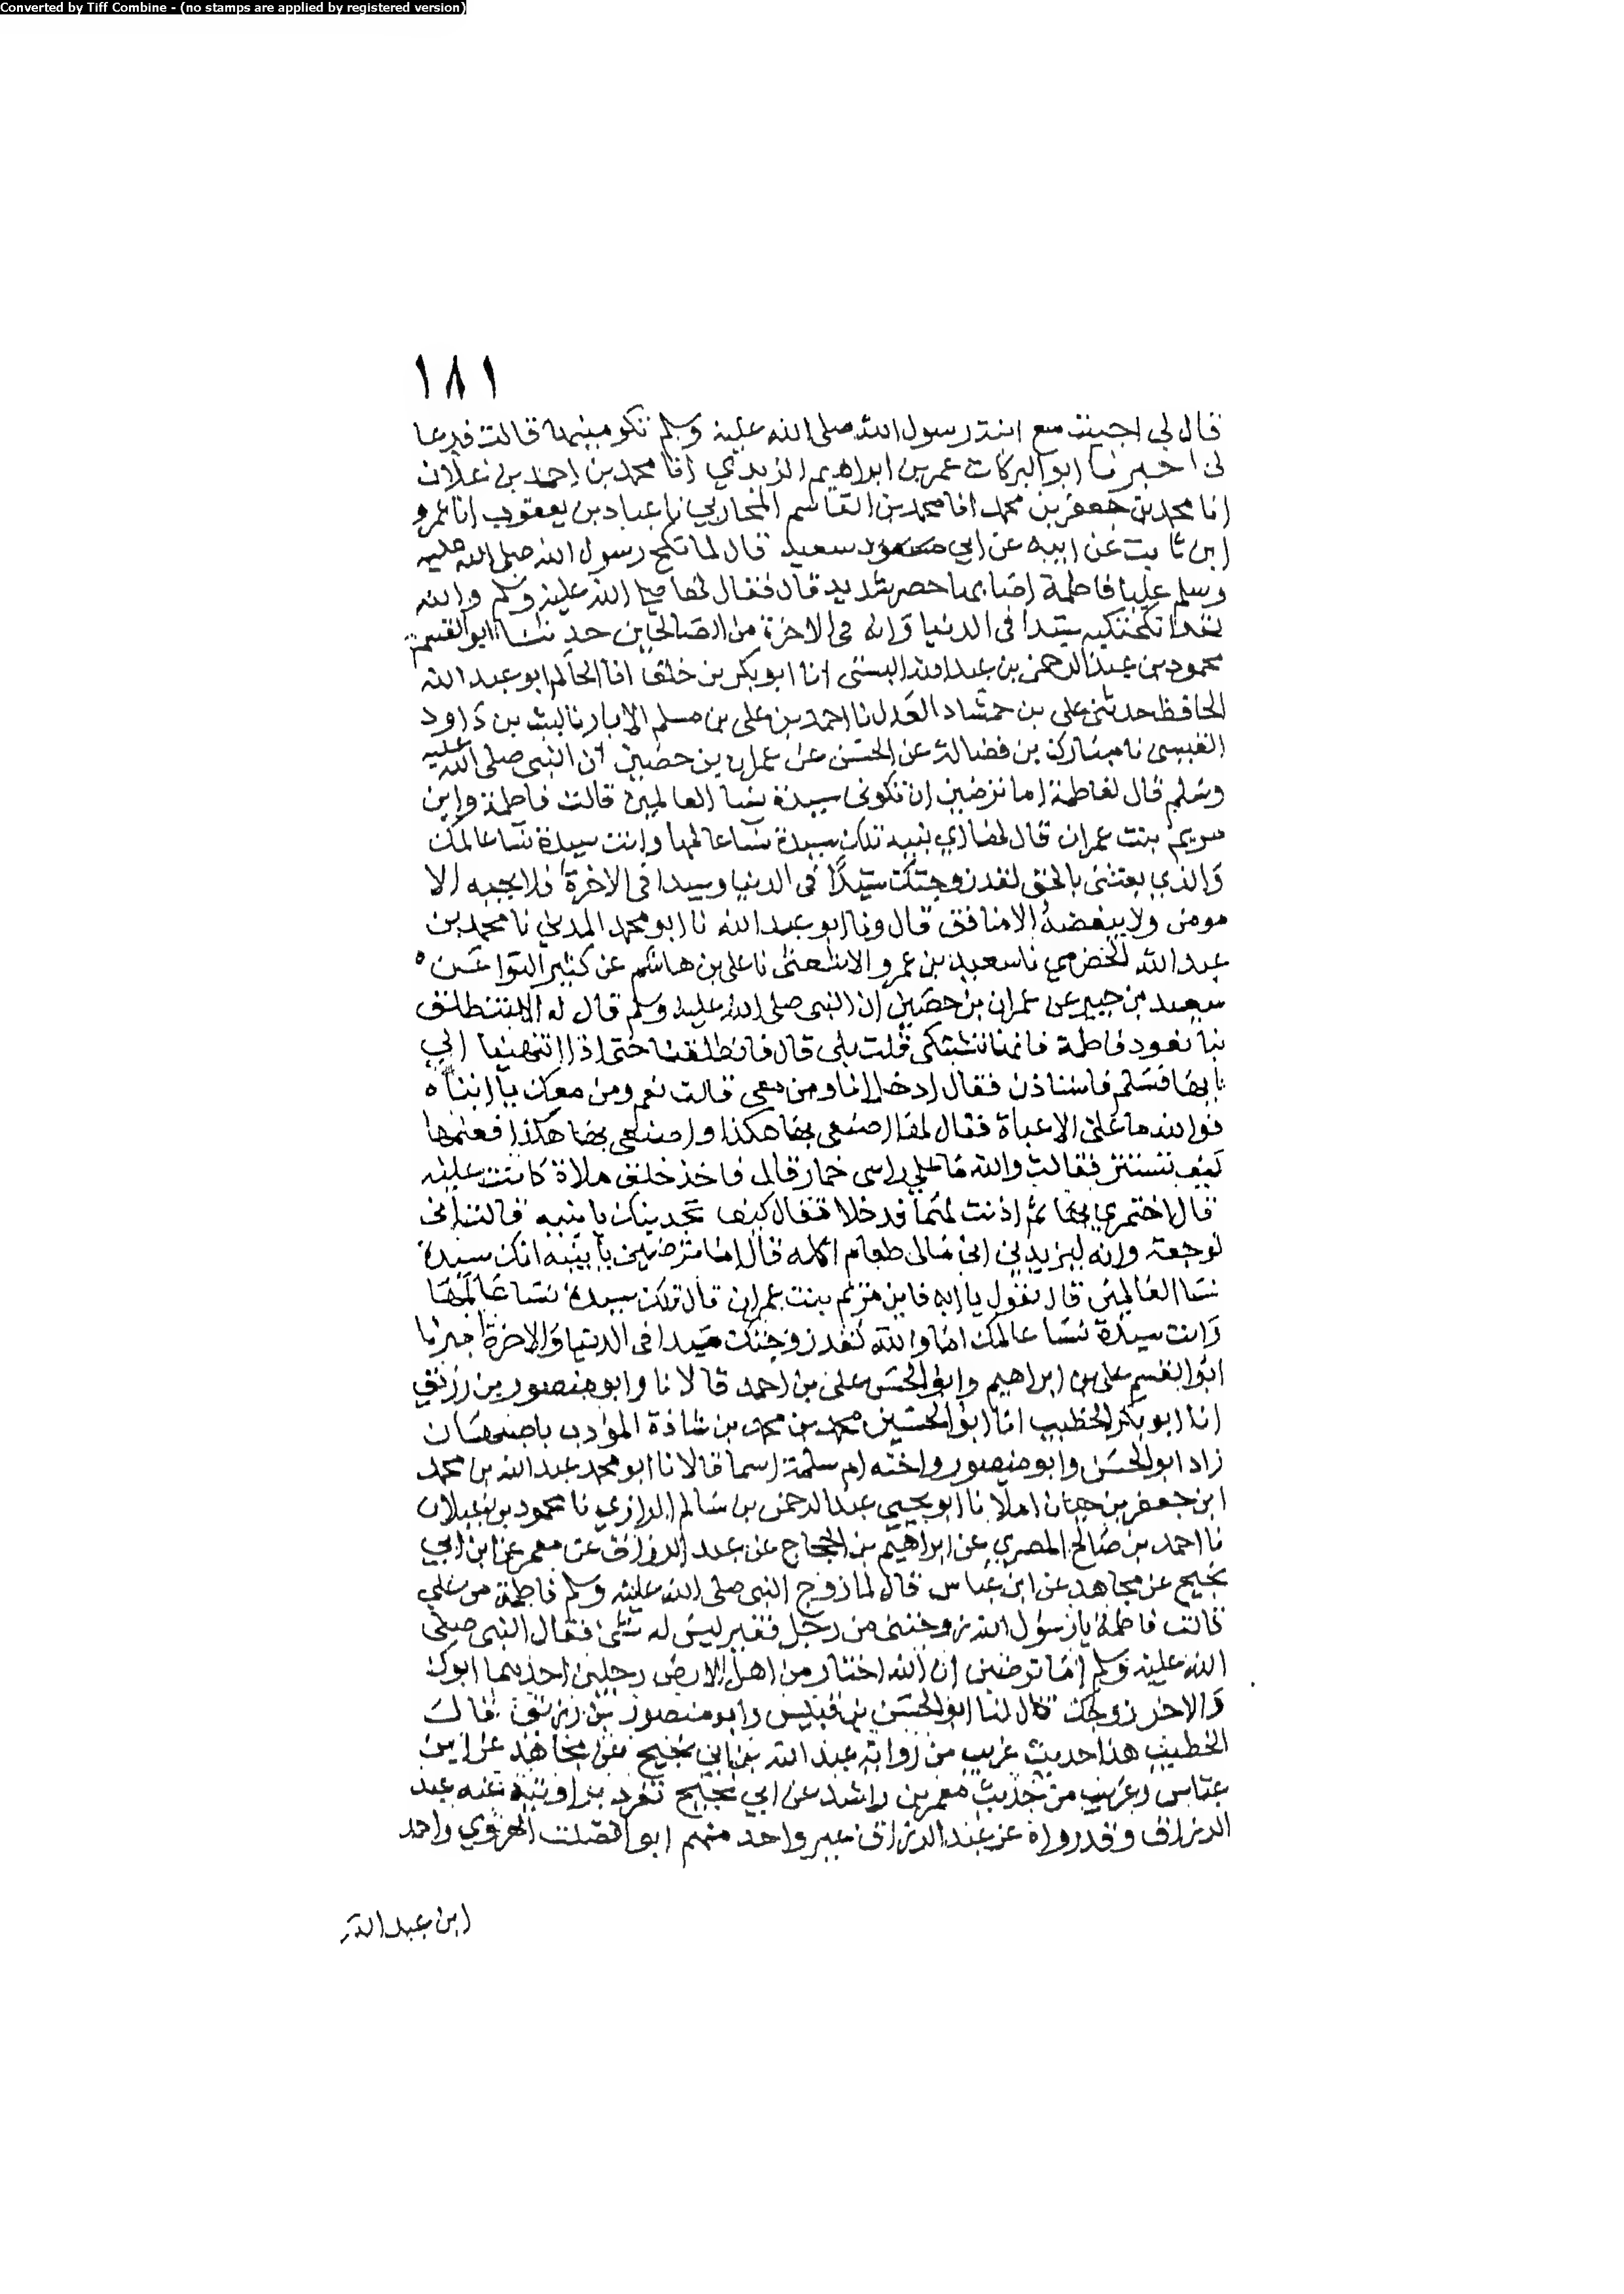 Converted by Tiff Combine - (no stamps are applied by registered version)
١٨١
قال لي اجيت مع ابنة رسول الله صلى الله عليه وسلم تكرمينها قالت فدعا
لى اخبرنا ابو البركات عمر بن ابراهيم الزيدي انا محمد بن احمد بن علان
انا محمد بن جعفر بن محمد انا محمد بن القاسم المحاربي نا عباد بن يعقوب انا عمرو
ابن ثابت عن ابيه عن ابي سعيد قال لما نكح رسول الله صلى الله عليه
وسلم عليا فاطمة اصابها حصر شديد قال فقال لها صلى الله عليه وسلم والله
لقد انكحتكيه سيدا في الدنيا وانه في الاخرة من الصالحين حدثنا ابو القسم
محمود بن عبد الرحمن بن عبد الله البستي انا ابو بكر بن خلف انا الحاكم ابو عبد الله
الحافظ حدثني علي بن حمشاد العدل نا احمد بن على بن مسلم الابار نا ليث بن داود
القيسي نا مبارك بن فضالة عن الحسن عن عمران بن حصين ان النبي صلى الله عليه
وسلم قال لفاطمة اما ترضين ان تكوني سيدة نسا العالمين قالت فاطمة واين
مريم بنت عمران قال لها اي بنيه تلك سيدة نسا عالمها وانت سيدة نسا عالمك
والذي بعثني بالحق لقد زوجتك سيدا في الدنيا وسيدا في الاخرة فلا يحبه الا
مومن ولا يبغضه الا منافق قال ونا ابو عبد الله نا ابو محمد المدني نا محمد بن
عبد الله الحضرمي نا سعيد بن عمرو الاشعثي نا على بن هاشم عن كثير النوا عن
سعيد بن جبير عن عمران بن حصين ان النبي صلى الله عليه وسلم قال له الا تنطلق
بنا نعود فاطمة فانها تشتكي قلت بلى قال فانطلقنا حتى اذا انتهينا الي
بابها فسلم فاستاذن فقال ادخل انا ومن معي قالت نعم ومن معك يا ابتاه
فوالله ما على الا عباة فقال لها اصنعي بها هكذا واصنعي بها هكذا فعلمها
كيف تستتر فقالت والله ما علي راسي خمار قال فاخذ خلق ملاة كانت عليه
قال اختمري بها ثم اذنت لهما فدخلا فقال كيف تجدينك يا بنيه قالت اني
لوجعة وانه ليزيدني اني مالى طعام اكله قال اما ترضين يا بنيه انك سيدة
نسا العالمين قال تقول يا ابه فاين مريم بنت عمران قال تلك سيدة نسا عالمها
وانت سيدة نسا عالمك اما والله لقد زوجتك سيدا في الدنيا والاخرة اخبرنا
ابو القسم على بن ابراهيم وابو الحسن على بن احمد قالا نا وابو منصور بن زريق
انا ابو بكر الخطيب انا ابو الحسين محمد بن محمد بن شاذة المؤدب باصبهان
زاد ابو الحسن وابو منصور واخته ام سلمة اسما قالا نا ابو محمد عبد الله بن محمد
ابن جعفر بن حيان املا نا ابو يحيي عبد الرحمن بن سالم الرازي نا محمود بن غيلان
نا احمد بن صالح المصري عن ابراهيم بن الحجاج عن عبد الرزاق عن معمر عن ابن ابي
نجيح عن مجاهد عن ابن عباس قال لما زوج النبي صلى الله عليه وسلم فاطمة من علي
قالت فاطمة يا رسول الله زوجتني من رجل فقير ليس له شئ فقال النبي صلى
الله عليه وسلم اما ترضين ان الله اختار من اهل الارض رجلين احدهما ابوك
والاخر زوجك قال لنا ابو الحسن بن قبيس وابو منصور بن زريق قال
الخطيب هذا حديث غريب من رواية عبد الله بن ابي نجيح عن مجاهد عن ابن
عباس وغريب من حديث معمر بن راشد عن ابي نجيح تفرد بروايته عنه عبد
الرزاق وقد رواه عن عبد الرزاق غير واحد منهم ابو الصلت الهروي واحمد
ابن عبد الله